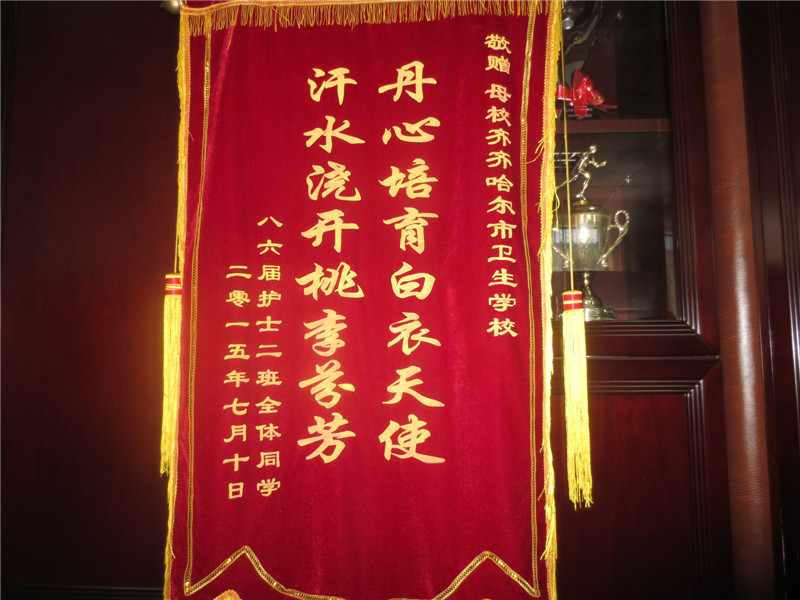 敬赠 母校齐齐哈尔市卫生学校
丹心培育白衣天使
汗水浇开桃李芬芳
八六届护士二班全体同学
二零一五年七月十日